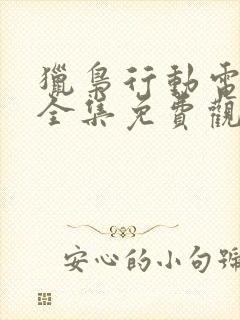 獵梟行動電
全集免費觀
安心的小句號